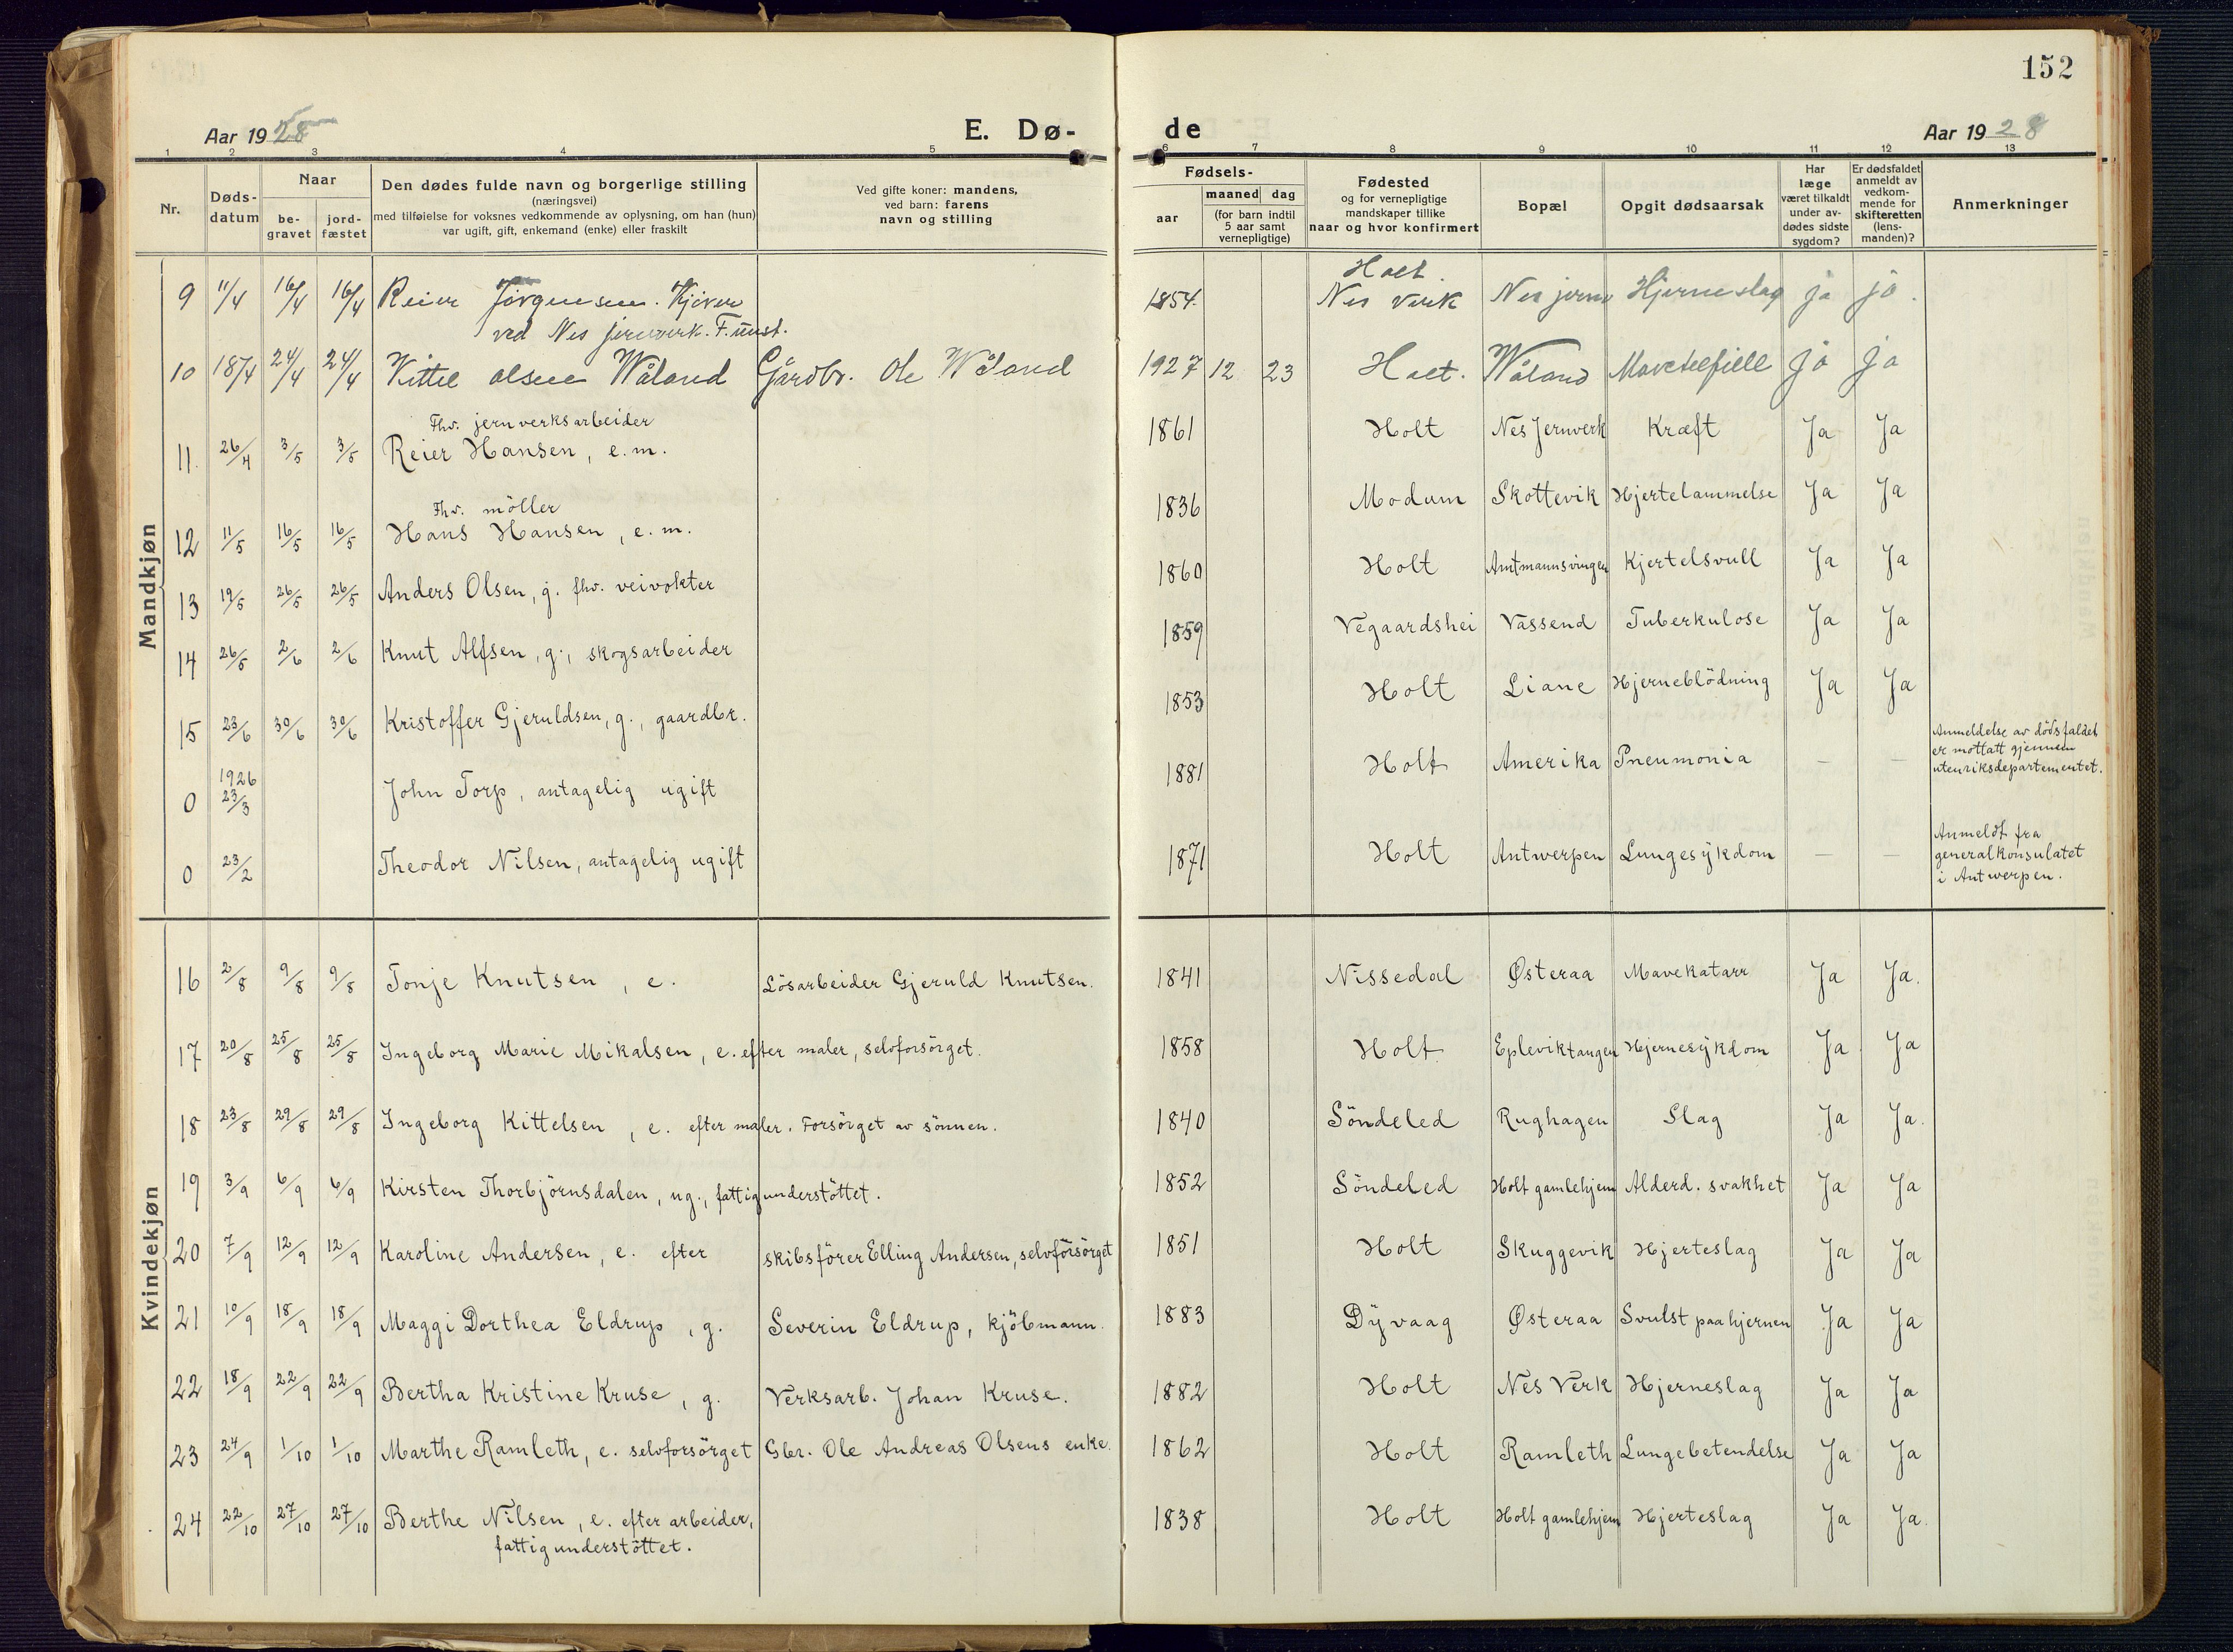 152
Aar 1928 E. Dø- de Aar 1928
1 2 3 4 5 6 7 8 9 10 11 12 13
Nr. Døds-datum Naar be-gravet jord-fæstet Den dødes fulde navn og borgerlige stilling (næringsvei) med tilføielse for voksnes vedkommende av oplysning, om han (hun) var ugift, gift, enkemand (enke) eller fraskilt Ved gifte koner: mandens, ved barn: farens navn og stilling Fødsels- aar maaned dag (for barn indtil 5 aar samt vernepligtige) Fødested og for vernepligtige mandskaper tillike naar og hvor konfirmert Bopæl Opgit dødsaarsak Har læge været tilkaldt under av-dødes sidste sygdom? Er dødsfaldet anmeldt av vedkom-mende for skifteretten (lens-manden)? Anmerkninger
Mandkjøn
9 11/4 16/4 16/4 Reier Jörgensen. 1854. Holt. Nes Verk Nes jernv Hjerneslag ja ja.
ved Nes jernverk.
10 18/4 24/4 24/4 Kittil Olsen Wåland Gårdbr. Ole Wåland 1927 12 23 Holt. Wåland ja ja
Fhv. jernverksarbeider
11. 26/4 3/5 3/5 Reier Hansen, e.m. 1861 Holt Nes Jernverk Kræft Ja Ja
Fhv. möller
12 11/5 16/5 16/5 Hans Hansen, e.m. 1836 Modum Skottevik Hjertelammelse Ja Ja
13 19/5 26/5 26/5 Anders Olsen, g. fhv. veivokter 1860 Holt Amtmannsvingen Kjertelsvull Ja Ja
14 26/5 2/6 2/6 Knut Alfsen, g., skogsarbeider 1859 Vegaardshei Vassend Tuberkulose Ja Ja
15 23/6 30/6 30/6 Kristoffer Gjeruldsen, g., gaardbr. 1853 Holt Liane Hjerneblödning Ja Ja
0 1926 23/3 John Torp, antagelig ugift 1881 Holt Amerika Pneumonia — — Anmeldelse av dödsfaldet er mottatt gjennem utenriksdepartementet.
0 23/2 Theodor Nilsen, antagelig ugift 1871 Holt Antwerpen Lungesykdom — — Anmeldt fra generalkonsulatet i Antwerpen.
Kvindekjøn
16 2/8 9/8 9/8 Tonje Knutsen, e. Lösarbeider Gjeruld Knutsen. 1841 Nissedal Østeraa Mavekatarr Ja Ja.
17 20/8 25/8 25/8 Ingeborg Marie Mikalsen, e. efter maler, selvforsörget. 1858 Holt Epleviktangen Hjernesykdom Ja Ja
18 23/8 29/8 29/8 Ingeborg Kittelsen, e. efter maler. Forsörget av sönnen. 1840 Söndeled Rughagen Slag Ja Ja.
19 3/9 6/9 6/9 Kirsten Thorbjörnsdalen, ug., fattigunderstöttet. 1852 Söndeled Holt gamlehjem Alderd. svakhet Ja Ja
20 7/9 12/9 12/9 Karoline Andersen, e. efter skibsförer Elling Andersen, selvforsörget 1851 Holt Skuggevik Hjerteslag Ja Ja
21 10/9 18/9 18/9 Maggi Dorthea Eldrup, g. Severin Eldrup, kjöbmann. 1883 Dyvaag Østeraa Svulst paa hjernen Ja Ja
22 18/9 22/9 22/9 Bertha Kristine Kruse, g. Verksarb. Johan Kruse. 1882 Holt Nes Verk Hjerneslag Ja Ja
23 24/9 1/10 1/10 Marthe Ramleth, e. selvforsörget Gbr. Ole Andreas Olsens enke. 1862 Holt Ramleth Lungebetendelse Ja Ja
24 22/10 27/10 27/10 Berthe Nilsen, e. efter arbeider, 1838 Holt Holt gamlehjem Hjerteslag Ja Ja.
fattigunderstöttet.